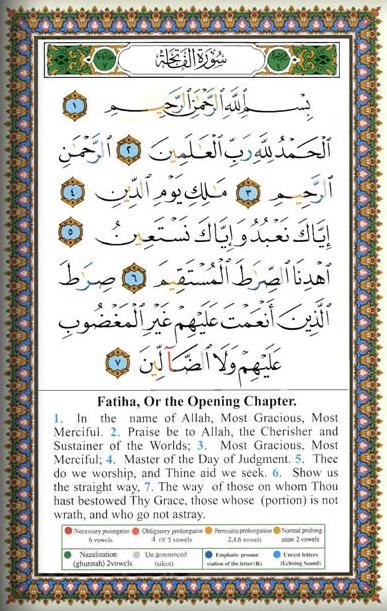 سُورَةُ الفَاتِحَة
بِسْمِ ٱللَّهِ ٱلرَّحْمَٰنِ ٱلرَّحِيمِ ١
ٱلْحَمْدُ لِلَّهِ رَبِّ ٱلْعَٰلَمِينَ ٢ ٱلرَّحْمَٰنِ
ٱلرَّحِيمِ ٣ مَٰلِكِ يَوْمِ ٱلدِّينِ ٤
إِيَّاكَ نَعْبُدُ وَإِيَّاكَ نَسْتَعِينُ ٥
ٱهْدِنَا ٱلصِّرَٰطَ ٱلْمُسْتَقِيمَ ٦ صِرَٰطَ
ٱلَّذِينَ أَنْعَمْتَ عَلَيْهِمْ غَيْرِ ٱلْمَغْضُوبِ
عَلَيْهِمْ وَلَا ٱلضَّآلِّينَ ٧
Fatiha, Or the Opening Chapter.
1. In the name of Allah, Most Gracious, Most
Merciful. 2. Praise be to Allah, the Cherisher and
Sustainer of the Worlds; 3. Most Gracious, Most
Merciful; 4. Master of the Day of Judgment. 5. Thee
do we worship, and Thine aid we seek. 6. Show us
the straight way, 7. The way of those on whom Thou
hast bestowed Thy Grace, those whose (portion) is not
wrath, and who go not astray.
Necessary prolongation 6 vowels
Obligatory prolongation 4 or 5 vowels
Permissible prolongation 2,4,6 vowels
Normal prolongation 2 vowels
Nazalization (ghunnah) 2vowels
Un announced (silent)
Emphatic pronunciation of the letter (R)
Unrest letters (Echoing Sound)